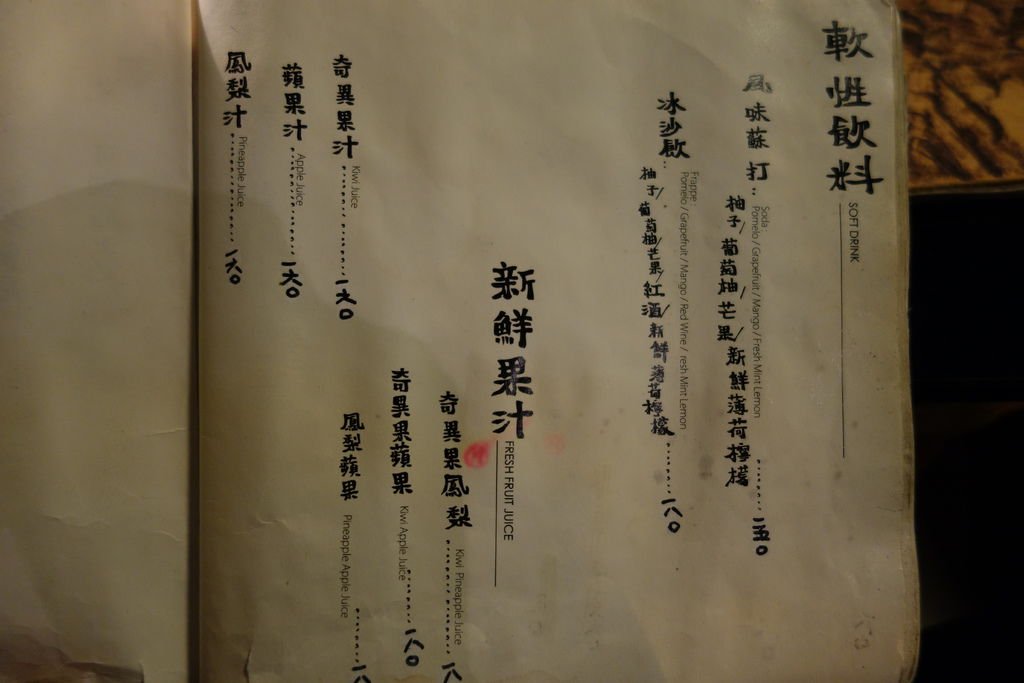 軟性飲料
SOFT DRINK
風味蘇打：
Soda :
Pomelo / Grapefruit / Mango / Fresh Mint Lemon
柚子/葡萄柚/芒果/新鮮薄荷檸檬 ........ 一五〇
冰沙飲：
Frappe :
Pomelo / Grapefruit / Mango / Red Wine / resh Mint Lemon
柚子/葡萄柚/芒果/紅酒/新鮮薄荷檸檬 ........ 一八〇
新鮮果汁
FRESH FRUIT JUICE
奇異果鳳梨
Kiwi Pineapple Juice
奇異果蘋果
Kiwi Apple Juice ........ 一八〇
鳳梨蘋果
Pineapple Apple Juice
奇異果汁
Kiwi Juice ........ 一六〇
蘋果汁
Apple Juice ........ 一六〇
鳳梨汁
Pineapple Juice ........ 一六〇